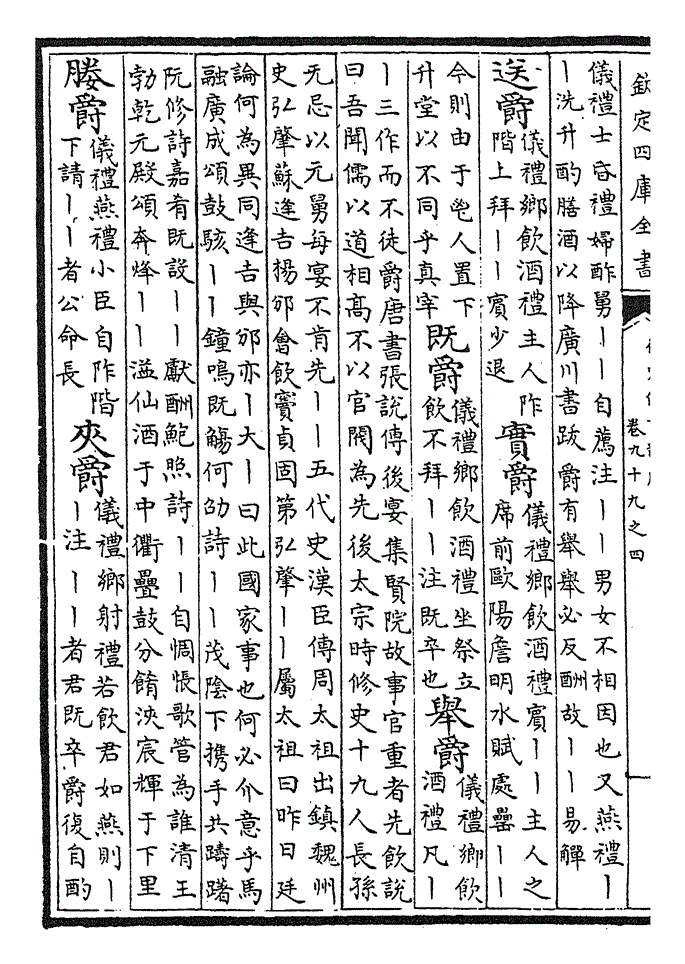 欽定四庫全書
卷九十九之四
儀禮士昏禮婦酢舅丨丨自薦注丨丨男女不相因也又燕禮丨
丨洗升酌膳酒以降廣川書跋爵有舉舉必反酬故丨丨易觶
送爵
儀禮鄉飲酒禮主人阼
階上拜丨丨賓少退
實爵
儀禮鄉飲酒禮賓丨丨主人之
席前歐陽詹明水賦處罍丨丨
今則由于鬯人置下
升堂以不同乎真宰
既爵
儀禮鄉飲酒禮坐祭立
飲不拜丨丨注既卒也
舉爵
儀禮鄉飲
酒禮凡丨
丨三作而不徒爵唐書張說傳後宴集賢院故事官重者先飲說
曰吾聞儒以道相高不以官閥為先後太宗時修史十九人長孫
无忌以元舅每宴不肯先丨丨五代史漢臣傳周太祖出鎮魏州
史弘肇蘇逢吉楊邠會飲竇貞固第弘肇丨丨屬太祖曰昨日廷
論何為異同逢吉與邠亦丨大丨曰此國家事也何必介意乎馬
融廣成頌鼓駭丨丨鐘鳴既觴何劭詩丨丨茂陰下攜手共躊躇
阮修詩嘉肴既設丨丨獻酬鮑照詩丨丨自惆悵歌管為誰清王
勃乾元殿頌奔烽丨丨溢仙酒于中衢疊鼓分餚泱宸輝于下里
媵爵
儀禮燕禮小臣自阼階
下請丨丨者公命長
夾爵
儀禮鄉射禮若飲君如燕則丨
丨注丨丨者君既卒爵復自酌